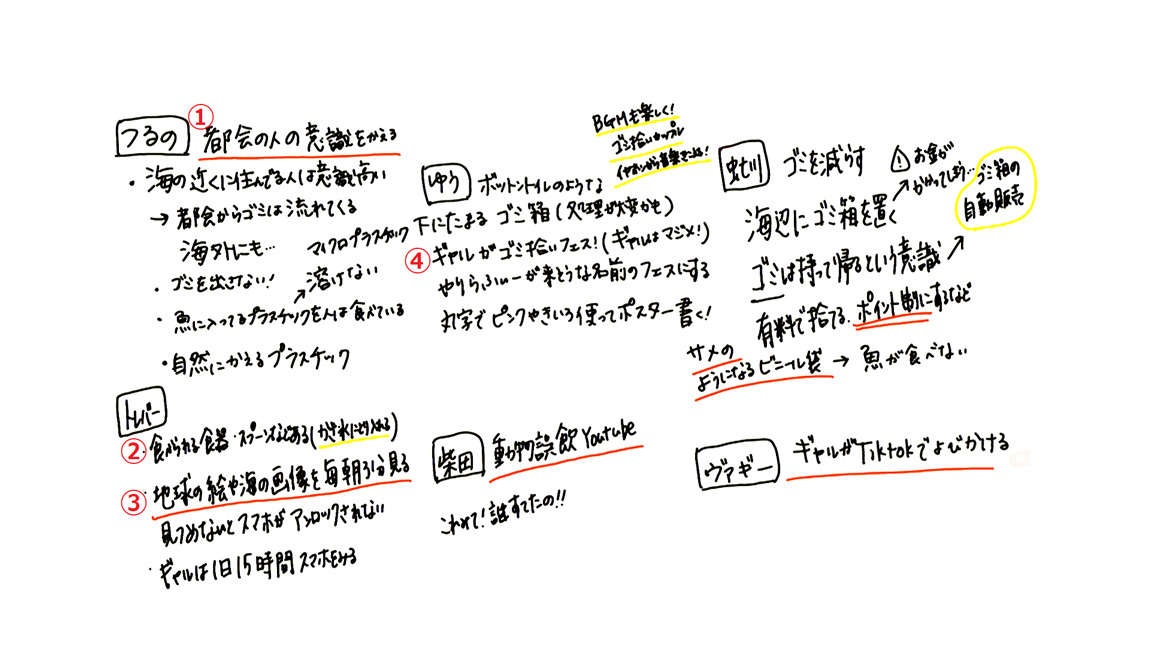 つるの
① 都会の人の意識をかえる
・海の近くに住んでる人は意識高い
→ 都会からゴミは流れてくる
海外にも…
マイクロプラスチック
・ゴミを出さない!
溶けない
・魚に入ってるプラスチックを人は食べている
・自然にかえるプラスチック
ゆう
ボットントイレのような
下にたまるゴミ箱(処理が大変かも)
④ ギャルがゴミ拾いフェス!(ギャルはマジメ!)
やりらふぃーが来そうな名前のフェスにする
丸字でピンクやきいろ使ってポスター書く!
BGMも楽しく!
ゴミ拾いカップル
イヤホンから音楽きこえる!
ゴミを減らす
お金が
かかってしまう…
ゴミ箱の
自動販売
海辺にゴミ箱を置く
ゴミは持って帰るという意識
有料で捨てる。ポイント制にするなど
サメの
ようになるビニール袋 → 魚が食べない
トレバー
② ・食べられる食器・スプーンなどある(かき氷にとり入れる)
③ ・地球の絵や海の画像を毎朝3分見る
見つめないとスマホがアンロックされない
・ギャルは1日15時間スマホをみる
柴田
動物誤飲Youtube
これ捨て!誰すてたの!!
ヴァギー
ギャルがTiktokでよびかける